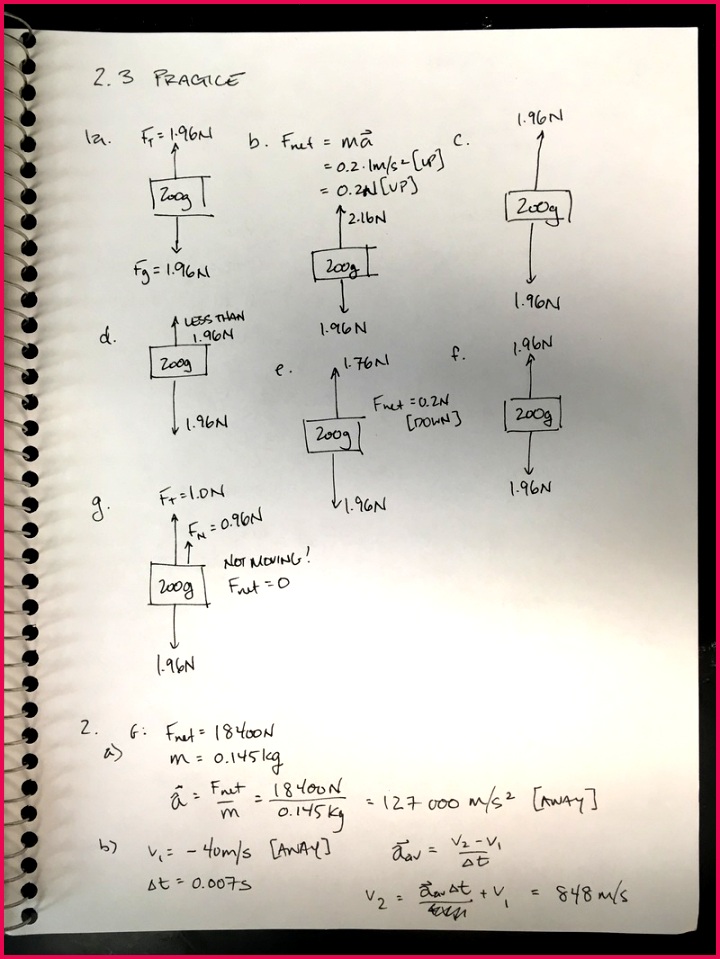 2.3 PRACTICE
1a. F_T = 1.96N
200g
Fg = 1.96N
b. Fnet = ma⃗
= 0.2 · 1m/s² [UP]
= 0.2N [UP]
2.16N
200g
1.96N
c.
1.96N
200g
1.96N
d.
LESS THAN
1.96N
200g
1.96N
e.
1.76N
Fnet = 0.2N
[DOWN]
200g
1.96N
f.
1.96N
200g
1.96N
g.
F_T = 1.0N
F_N = 0.96N
NOT MOVING!
Fnet = 0
200g
1.96N
2. G: Fnet = 18400N
a) m = 0.145kg
a⃗ = Fnet/m = 18400N/0.145kg = 127 000 m/s² [AWAY]
b) v₁ = -40m/s [AWAY]
Δt = 0.007s
a⃗av = v₂ - v₁/Δt
v₂ = a⃗avΔt + v₁ = 848 m/s